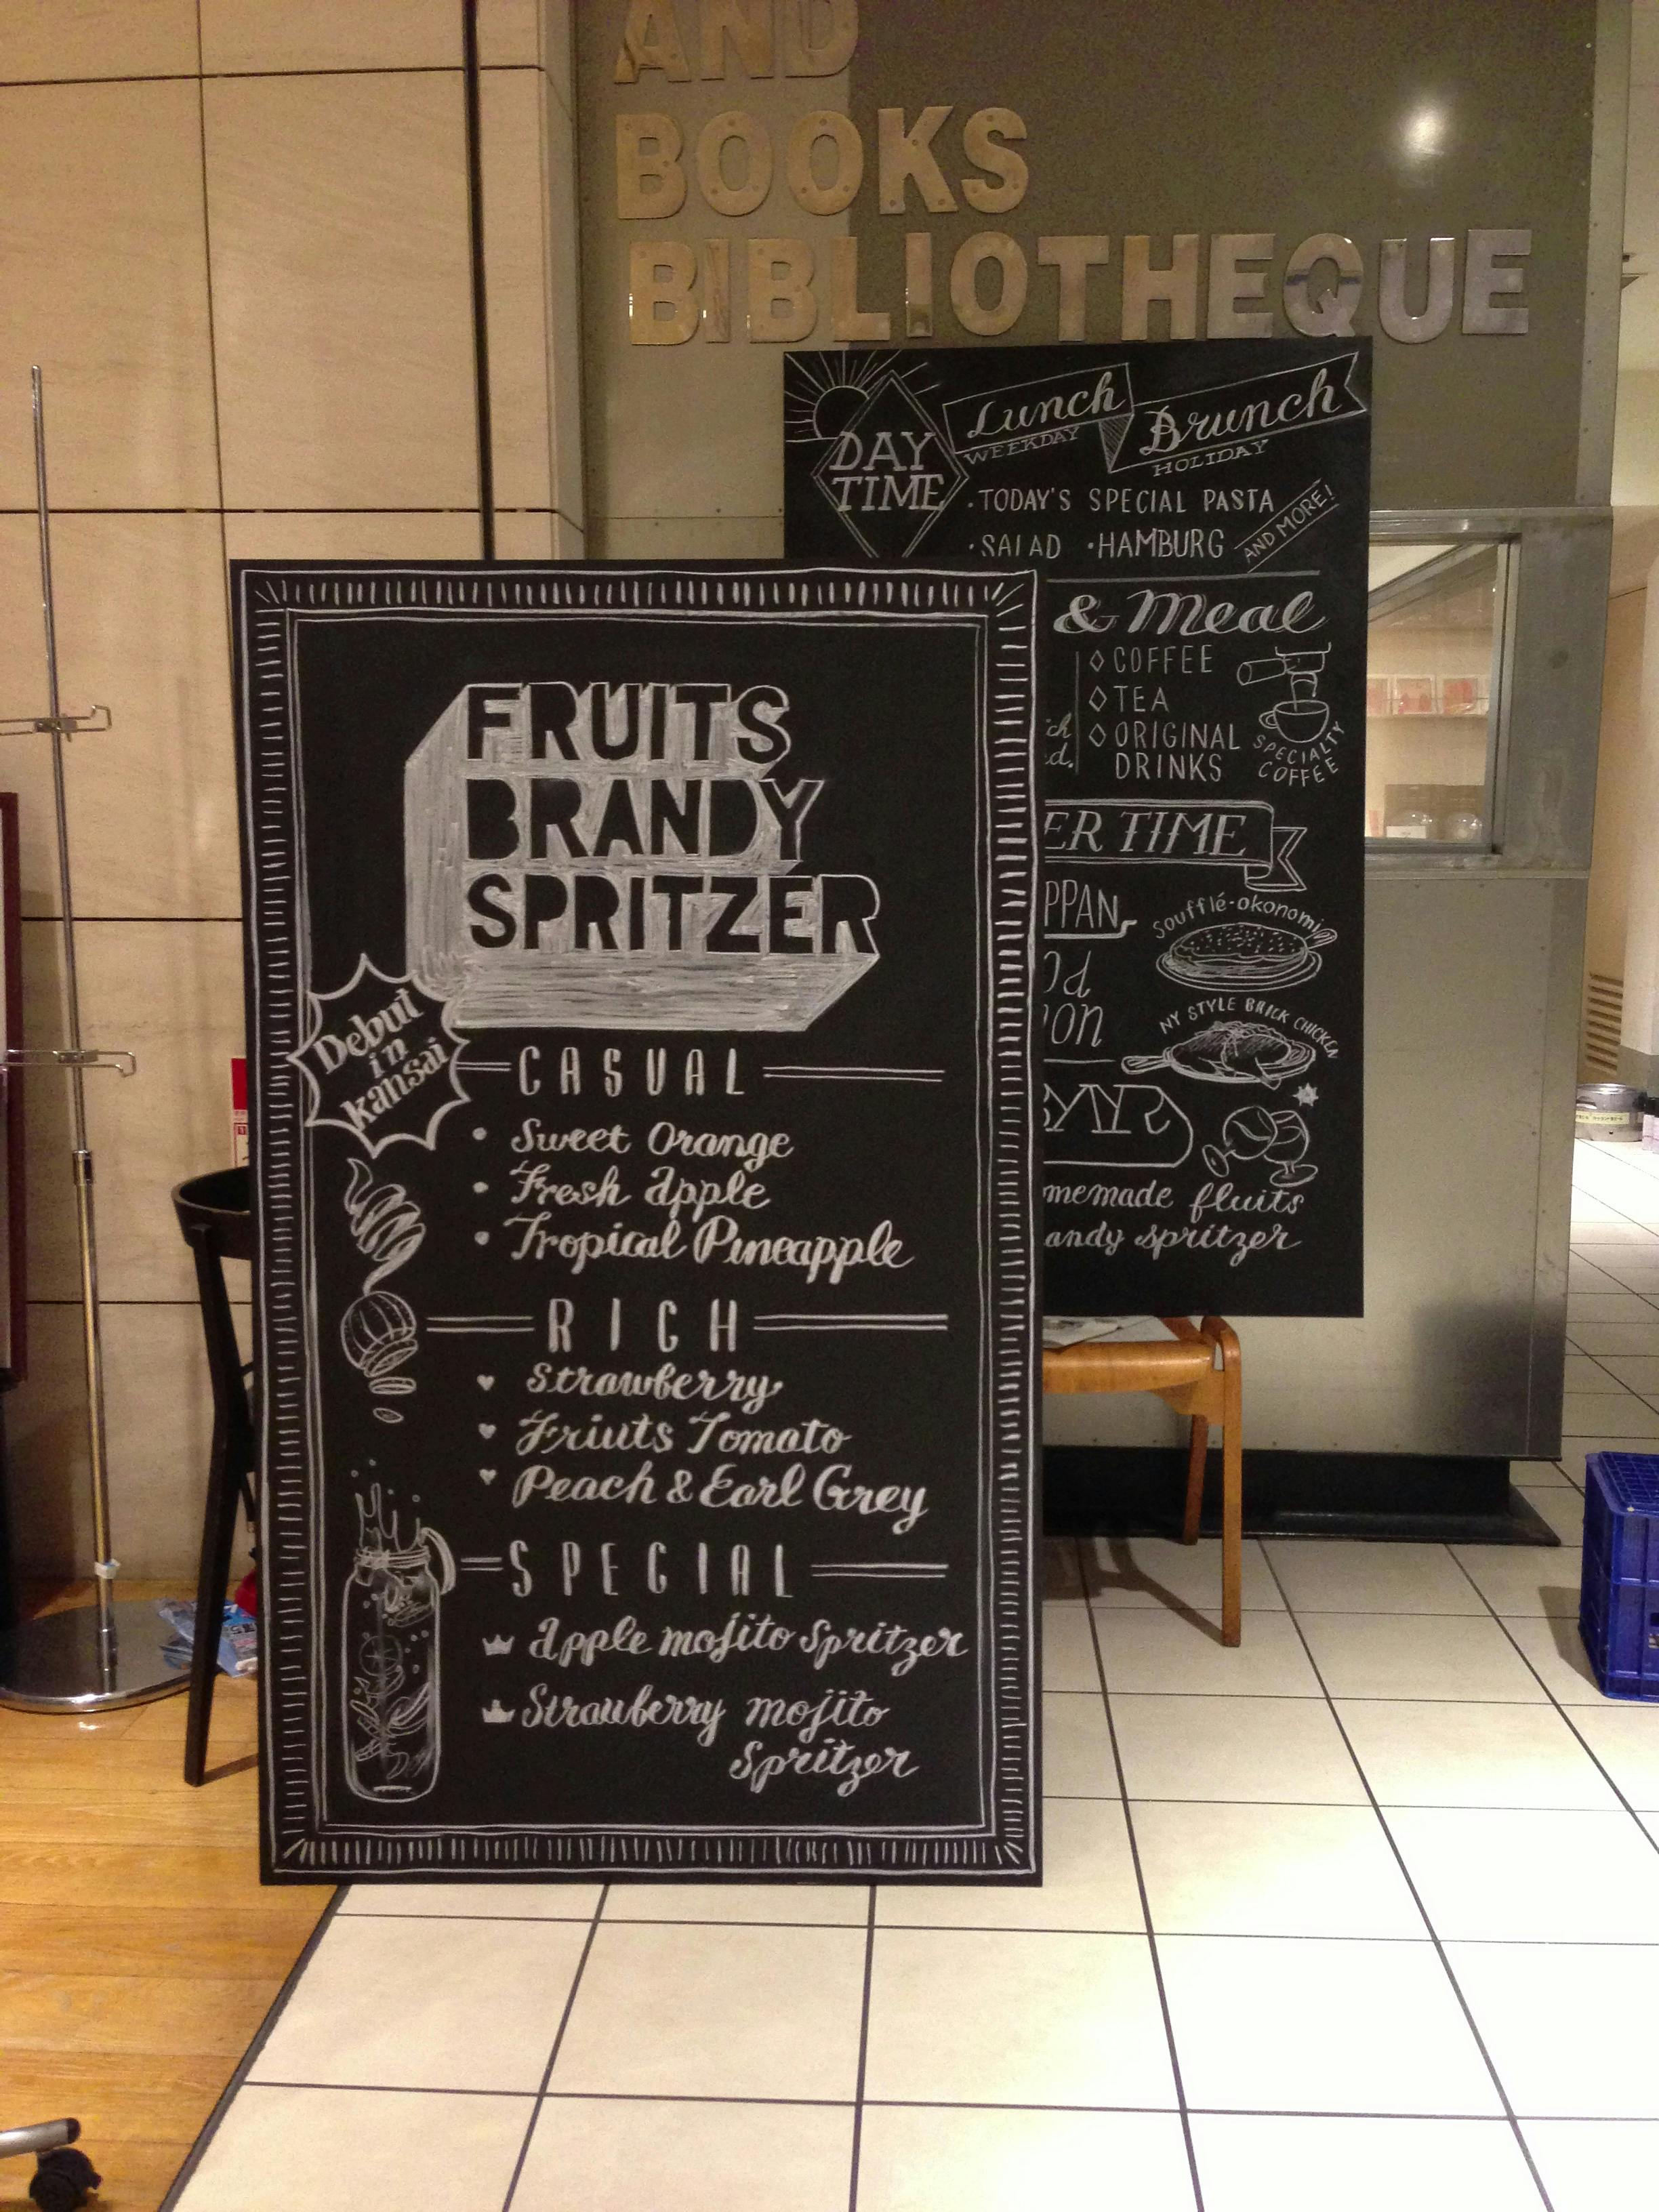 AND
BOOKS
BIBLIOTHEQUE
DAY
TIME
Lunch
WEEKDAY
Brunch
HOLIDAY
·TODAY'S SPECIAL PASTA
·SALAD ·HAMBURG
AND MORE!
& Meal
◇COFFEE
◇TEA
◇ORIGINAL
DRINKS
SPECIALTY
COFFEE
ER TIME
PPAN
Soufflé·okonomi
NY STYLE BRICK CHICKEN
BAR
memade fluits
andy spritzer
FRUITS
BRANDY
SPRITZER
Debut
in
kansai
CASUAL
• Sweet Orange
• Fresh apple
• Tropical Pineapple
RICH
♥ Strawberry
♥ Friuts Tomato
♥ Peach & Earl Grey
SPECIAL
apple mojito spritzer
Strawberry mojito
Spritzer